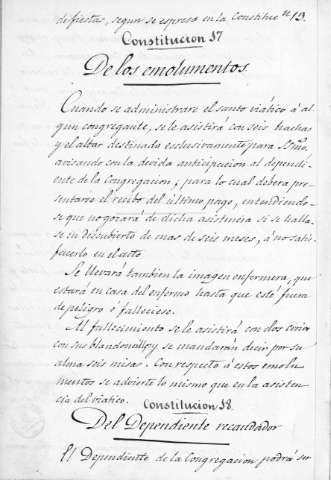 de fiestas, segun se espresa en la Constituc.n 19.
Constitucion 17
De los emolumentos.
Cuando se administrare el santo viático á al
gun congregante, se le asistirá con seis hachas
y el altar destinado esclusivamente para
avisando con la devida anticipacion al dependi-
ente de la Congregacion; para lo cual debera pre-
sentarse el recibo del último pago, entendiendo-
se que no gozará de dicha asistencia si se halla-
se en descubierto de mas de seis meses, á no satis-
facerlo en el acto
Se llevará tambien la imagen enfermera, que
estará en casa del enfermo hasta que esté fuera
de peligro ó falleciese.
Al fallecimiento se le asistirá con dos cirios
con sus blandoncillos y se mandarán decir por su
alma seis misas. Con respecto á estos emolu
mentos se advierte lo mismo que en la asisten-
cia del viatico.
Constitucion 18.
Del Dependiente recaudador
El Dependiente de la Congregacion podrá ser